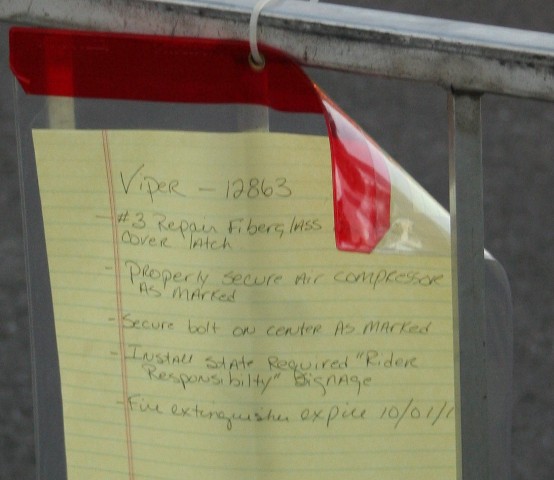 Viper - 12863
- #3 Repair Fiberglass
cover latch
- Properly secure Air compressor
As Marked
- Secure bolt on center As Marked
- Install State Required "Rider
Responsibilty" Signage
- Fire extinguisher expire 10/01/1